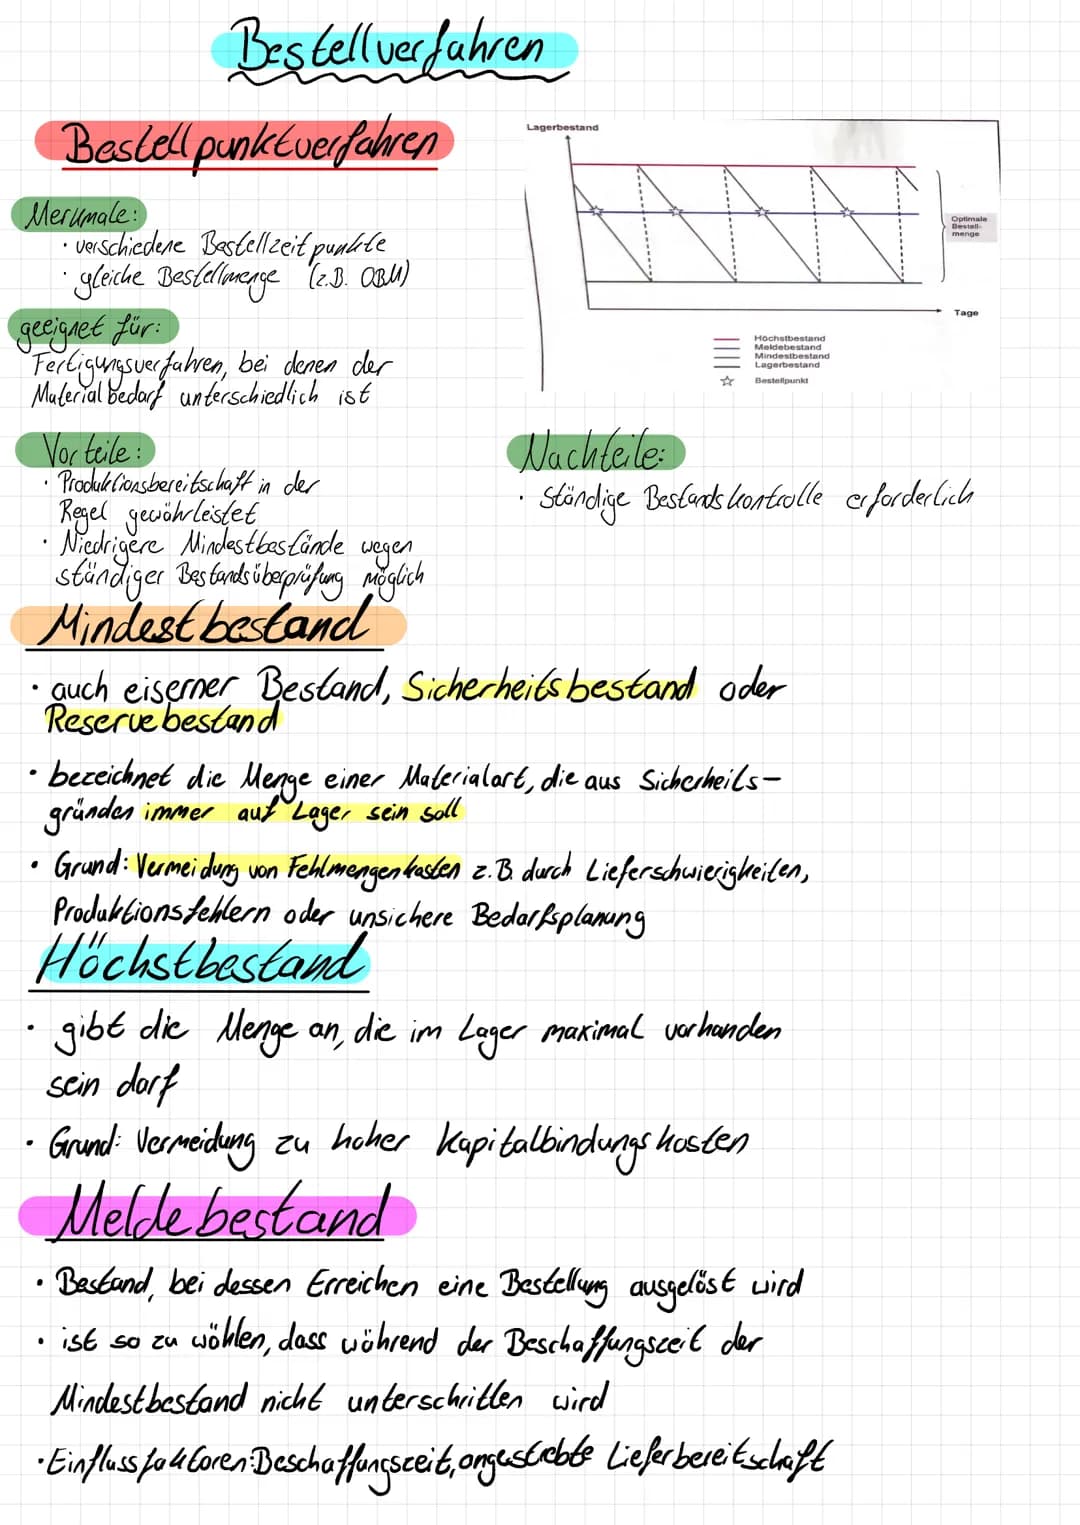 Bestellverfahren
Bestellpunktverfahren
Merkmale:
· verschiedene Bestellzeitpunkte
· gleiche Bestellmenge (z.B. OBM)
geeignet für:
Fertigungsverfahren, bei denen der
Materialbedarf unterschiedlich ist
Lagerbestand
Optimale
Bestell-
menge
Tage
Höchstbestand
Meldebestand
Mindestbestand
Lagerbestand
Bestellpunkt
Vorteile:
· Produktionsbereitschaft in der
Regel gewährleistet
· Niedrigere Mindestbestände wegen
ständiger Bestandsüberprüfung möglich
Nachteile:
· Ständige Bestandskontrolle erforderlich
Mindestbestand
· auch eiserner Bestand, Sicherheitsbestand oder
Reservebestand
· bezeichnet die Menge einer Materialart, die aus Sicherheits-
gründen immer auf Lager sein soll
· Grund: Vermeidung von Fehlmengenkosten z.B. durch Lieferschwierigkeiten,
Produktionsfehlern oder unsichere Bedarfsplanung
Höchstbestand
· gibt die Menge an, die im Lager maximal vorhanden
sein darf
· Grund: Vermeidung zu hoher Kapitalbindungskosten
Meldebestand
· Bestand, bei dessen Erreichen eine Bestellung ausgelöst wird
· ist so zu wählen, dass während der Beschaffungszeit der
Mindestbestand nicht unterschritten wird
· Einflussfaktoren: Beschaffungszeit, angestrebte Lieferbereitschaft